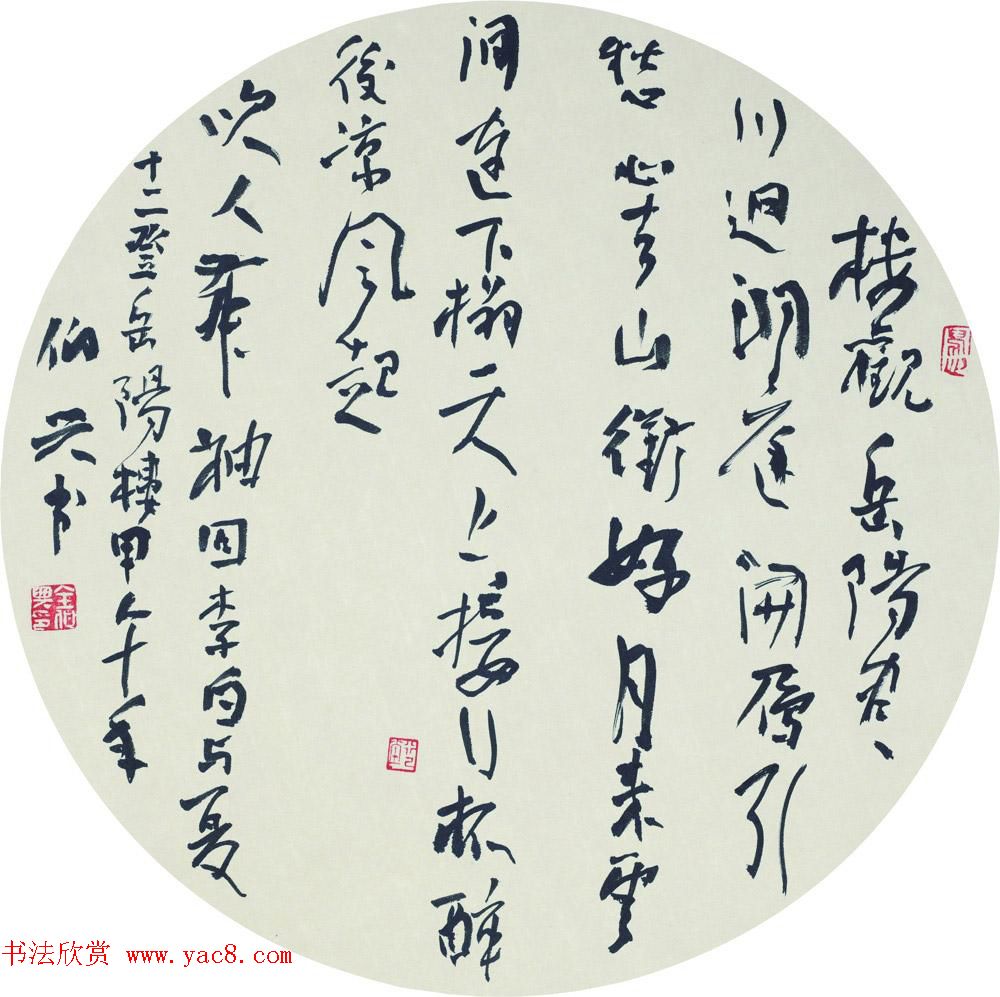 楼觀岳陽尽
川迥洞庭開雁引
愁心去山銜好月来雲
间連下榻天上接行杯醉
後凉风起
吹人舞袖回李白与夏
十二登岳陽樓甲午年
伯兴书
金伯興印
书法欣赏 www.yac8.com